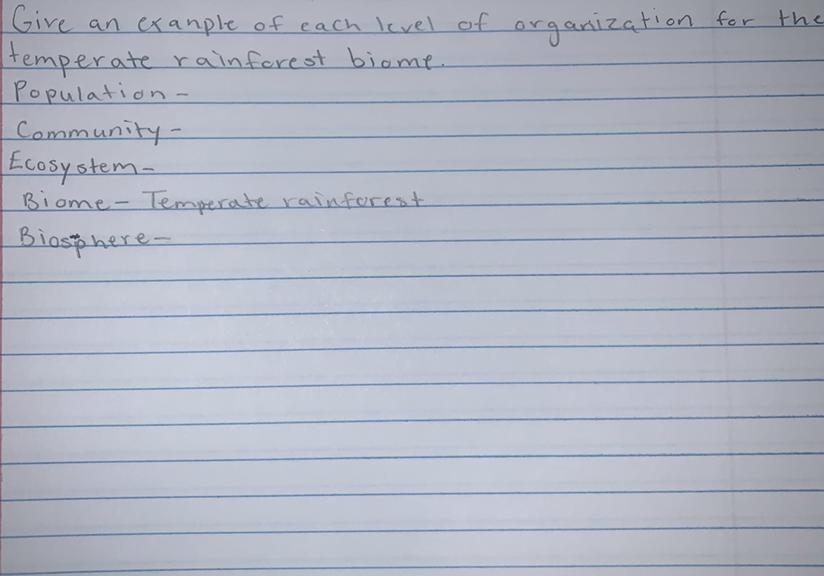 Give an example of each level of organization for the
temperate rainforest biome.
Population -
Community -
Ecosystem -
Biome - Temperate rainforest
Biosphere -